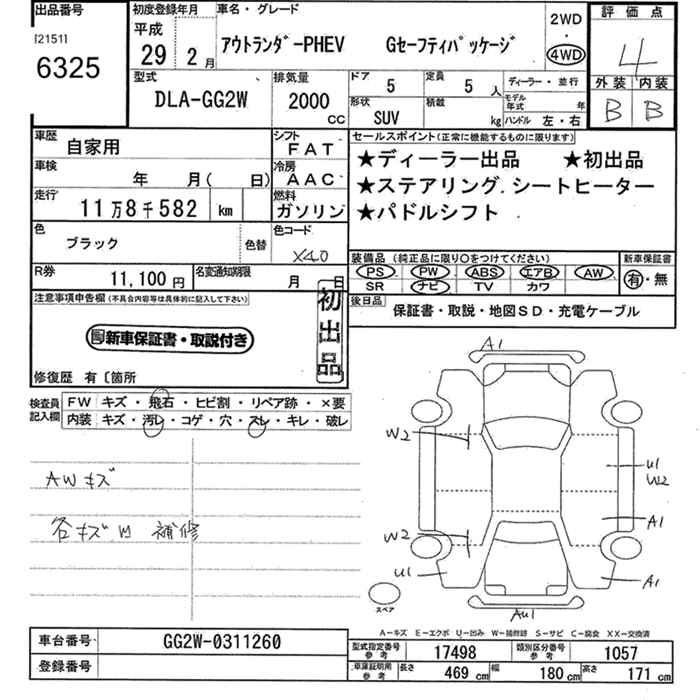 出品番号
I21511
6325
初度登録年月
平成
29年 2月
車名・グレード
アウトランダーPHEV Gセーフティパッケージ
2WD
・
4WD
評価点
4
外装 内装
B B
型式
DLA-GG2W
排気量
2000
CC
ドア 5
定員 5人
形状 SUV
積載 kg
ディーラー・並行
モデル年式 年
ハンドル 左・右
車歴 自家用
シフト FAT
車検 年 月( 日)
冷房 AAC
走行 11万8千582 km
燃料 ガソリン
色 ブラック 色替
色コード X40
R券 11,100円
名変通知期限 月 日
セールスポイント(正常に機能するものに限ります)
★ディーラー出品 ★初出品
★ステアリング.シートヒーター
★パドルシフト
装備品(純正品に限り○をつけてください)
PS PW ABS エアB AW
SR ナビ TV カワ
新車保証書
有・無
後日品
保証書・取説・地図SD・充電ケーブル
注意事項申告欄(不具合内容等は具体的に記入して下さい)
新車保証書・取説付き
初出品
修復歴 有〔箇所
検査員記入欄
FW キズ・飛石・ヒビ割・リペア跡・×要
内装 キズ・汚レ・コゲ・穴・スレ・キレ・破レ
AWキズ
各キズ凹 補修
A1
W2
U1
W2
A1
W2
U1
A1
AU1
スペア
A-キズ E-エクボ U-凹み W-補修跡 S-サビ C-腐食 XX-交換済
車台番号 GG2W-0311260
登録番号
型式指定番号参考 17498
類別区分番号参考 1057
車庫証明用参考 長さ 469cm 幅 180cm 高さ 171cm